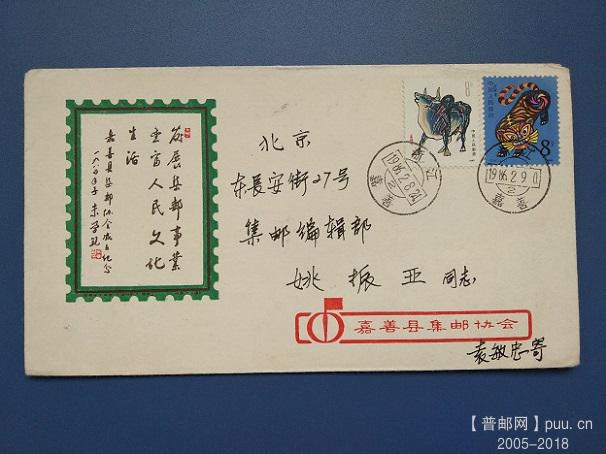 发展集邮事业
丰富人民文化
生活
嘉善县集邮协会成立纪念
北京
东长安街27号
集邮编辑部
姚振亚 同志
嘉善县集邮协会
袁敏忠寄
8
中国人民邮政
8
1986.2.8.24
1986.2.9.0
【普邮网】puu.cn
2005-2018